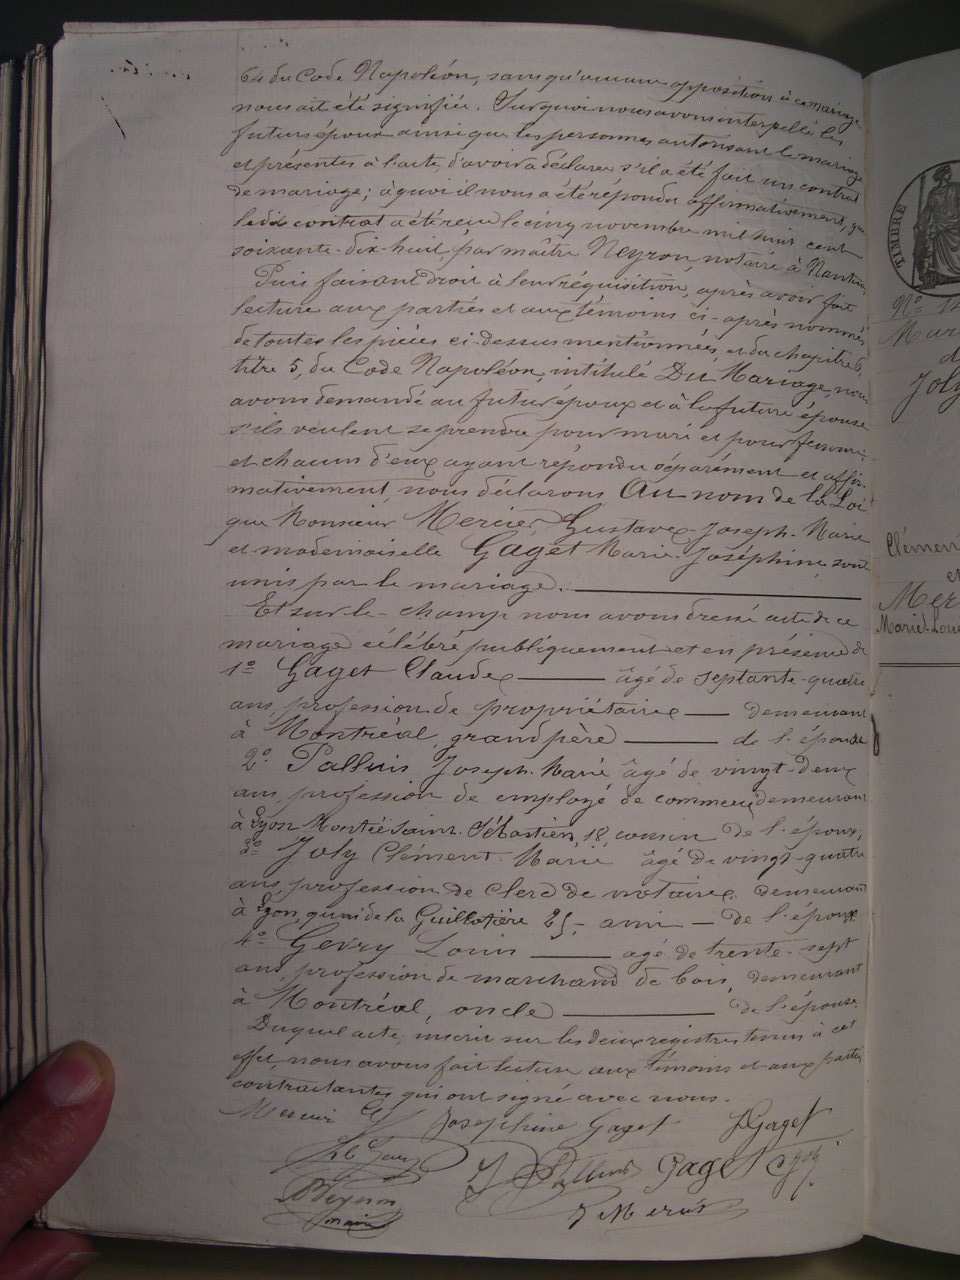 64 du Code Napoléon, sans qu'aucune opposition à ce mariage
nous ait été signifiée. Sur quoi nous avons interpellé les
futurs époux ainsi que les personnes autorisant le mariage
et présentes à l'acte, d'avoir à déclarer s'il a été fait un contrat
de mariage; à quoi il nous a été répondu affirmativement, que
le dix contrat a été reçu le cinq novembre mil huit cent
soixante-dix-huit, par maître Neyron, notaire à Nantua
Puis faisant droit à leur réquisition, après avoir fait
lecture aux parties et aux témoins ci-après nommés
de toutes les pièces ci-dessus mentionnées, et du chapitre 6,
titre 5, du Code Napoléon, intitulé Du Mariage, nous
avons demandé au futur époux et à la future épouse
s'ils veulent se prendre pour mari et pour femme,
et chacun d'eux ayant répondu séparément et affir-
mativement, nous déclarons Au nom de la Loi
que Monsieur Mercier Gustave-Joseph-Marie
et mademoiselle Gaget Marie-Joséphine, sont
unis par le mariage.
Et sur-le-champ nous avons dressé acte de ce
mariage célébré publiquement et en présence de
1° Gaget Claude âgé de septante-quatre
ans, profession de propriétaire demeurant
à Montréal, grand père de l'épouse
2° Palluis Joseph-Marie âgé de vingt-deux
ans, profession de employé de commerce demeurant
à Lyon Montée Saint-Sébastien, 18, cousin de l'époux,
3° Joly Clément-Marie âgé de vingt-quatre
ans, profession de clerc de notaire demeurant
à Lyon, quai de la Guillotière 25, ami de l'époux
4° Gevry Louis âgé de trente-sept
ans, profession de marchand de bois, demeurant
à Montréal, oncle de l'épouse.
Duquel acte, inscrit sur les deux registres tenus à cet
effet, nous avons fait lecture aux témoins et aux parties
contractantes qui ont signé avec nous.
Mercier G Joséphine Gaget Gaget
Gaget Joly
TIMBRE
N°
Mar
d
Joly
Clément
et
Mer
Marie-Loui